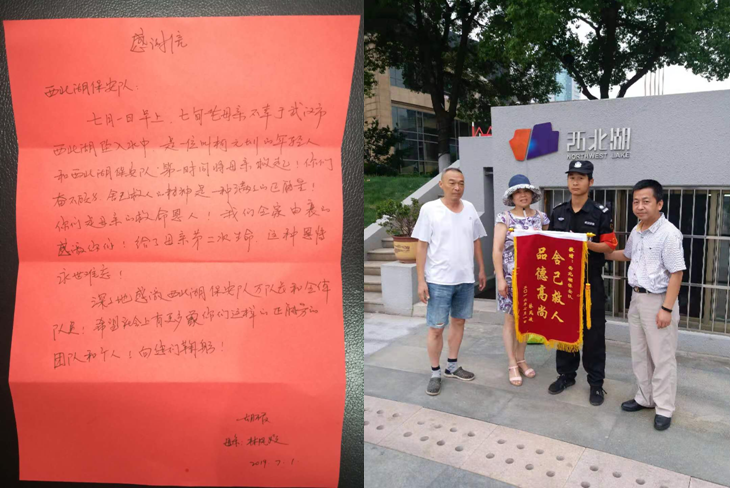 感谢信
西北湖保安队:
七月一日早上,七旬老母亲不幸于武汉市
西北湖坠入水中 是一位叫 的年轻人
和西北湖保安队第一时间将母亲救起!你们
奋不顾身 舍己救人的精神是一种满满的正能量!
你们是母亲的救命恩人!我们全家由衷的
感谢你们!给了母亲第二次生命 这种恩情
永世难忘!
深深地感谢西北湖保安队万队长和全体
队员!希望社会上有更多像你们这样的正能量的
团队和个人!向您们鞠躬!
2019.7.1
西北湖
NORTHWEST LAKE
敬赠:西北湖保安队
舍己救人
品德高尚